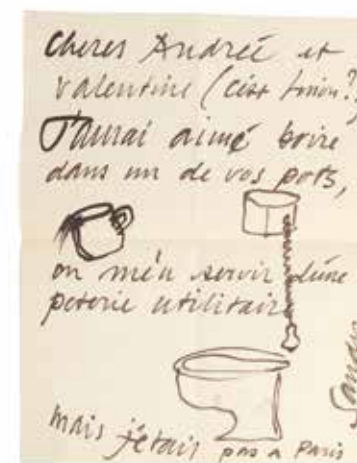 Cheres Andrée et
Valentine (c'est
J'aurai aimé boire
dans un de vos pots,
on m'en servir d'une
poterie utilitaire
mais j'étais pas a Paris